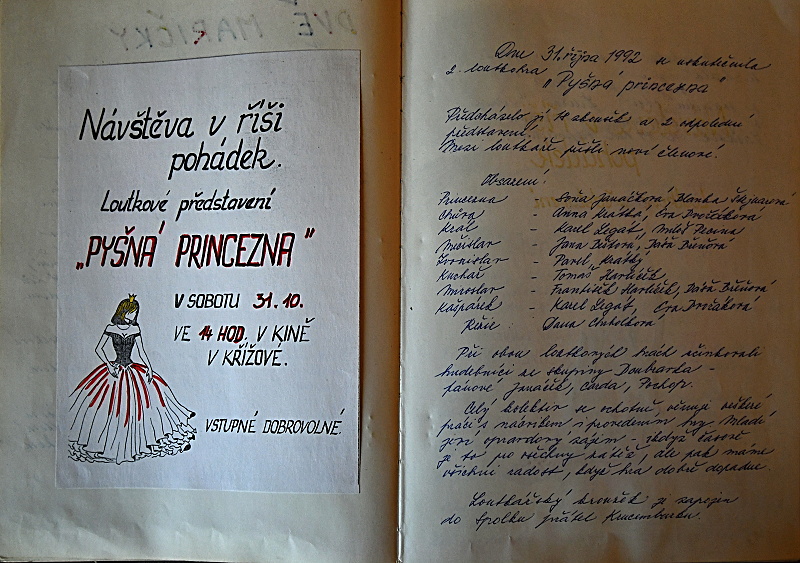 DVĚ MARIČKY
Návštěva v říši
pohádek.
Loutkové představení
„PYŠNÁ PRINCEZNA"
V SOBOTU 31.10.
VE 14 HOD. V KINĚ
V KŘÍŽOVÉ.
VSTUPNÉ DOBROVOLNÉ.
Dne 31. října 1992 se uskutečnila
2. loutkohra
„Pyšná princezna"
Předcházelo jí 14 zkoušek a 2 odpolední
představení.
Mezi loutkáře přišli noví členové.
Obsazení:
Princezna - Soňa Janáčková, Blanka
Chůva - Anna Krátká, Eva Dvořáková
Král - Karel Legát, Miloš Pecina
Mečislav - Jana Bůžová, Dáša Bůňová
- Pavel Krátký
Kuchař - Tomáš Havlíček
Miroslav - František Havlíček, Dáša Bůňová
Kašpárek - Karel Legát, Eva Dvořáková
Režie: Jana Chvalková
Při obou loutkových hrách účinkovali
hudebníci ze skupiny Doubravka -
pánové Janáček, Čarda, Pochop.
Celý kolektiv se ochotně věnuje veškeré
práci s nácvikem i provedením hry. Mladí
jeví opravdový zájem - i když časově
je to pro všechny zátěž, ale pak máme
všichni radost, když hra dobře dopadne.
Loutkářský kroužek je zapojen
do Spolku přátel Krucemburku.